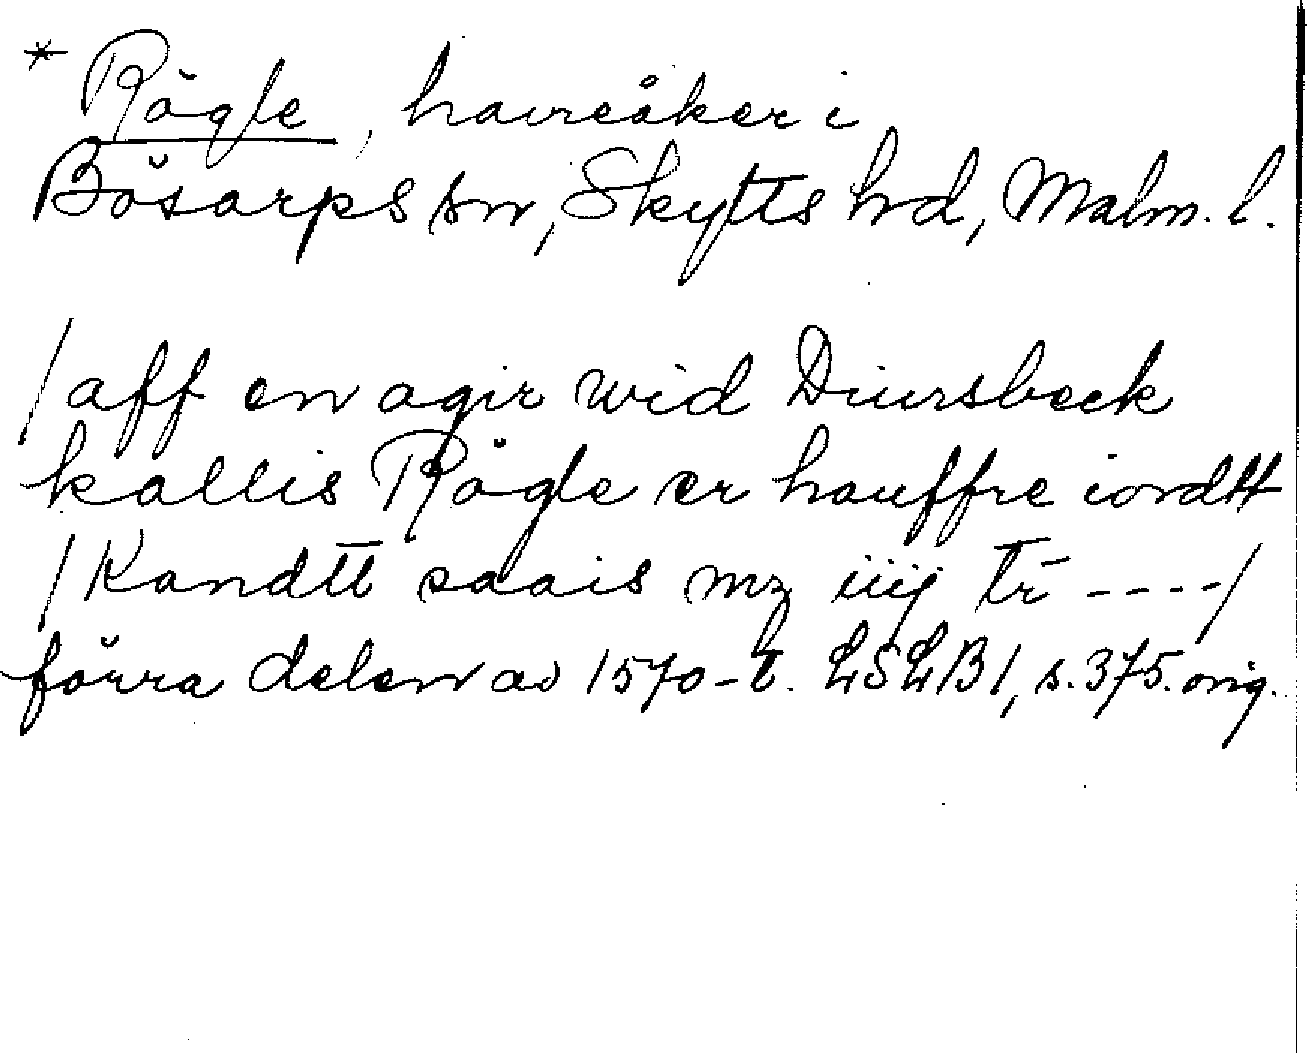 * Rögle, havreåker i
Bösarps sn, Skytts hd, Malm. l.
/aff en agir wid Diursbeck
kallis Rögle er hauffre iordtt
/Kandtt saais mz iiij tr̄ ----/
förra delen av 1570-t. LSLB1, s. 375. orig.